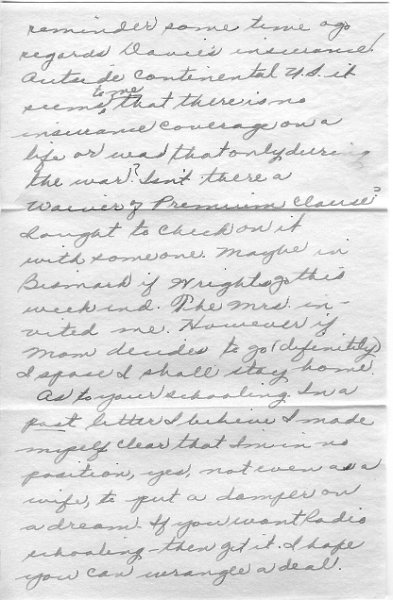 reminder some time ago
regards Davie's insurance!
Outside Continental U.S. it
seems to me, that there is no
insurance coverage on a
life or was that only during
the war? Isn't there a
Waiver of Premium Clause?
I ought to check on it
with someone. Maybe in
Bismark if Wrights go this
week end. The Mrs. in-
vited me. However if
Mom decides to go (definitely)
I spose I shall stay home.
As to your schooling. In a
past letter I believe I made
myself clear that I'm in no
position, yes, not even as a
wife, to put a damper on
a dream. If you want Radio
schooling - then get it. I hope
you can wrangle a deal.